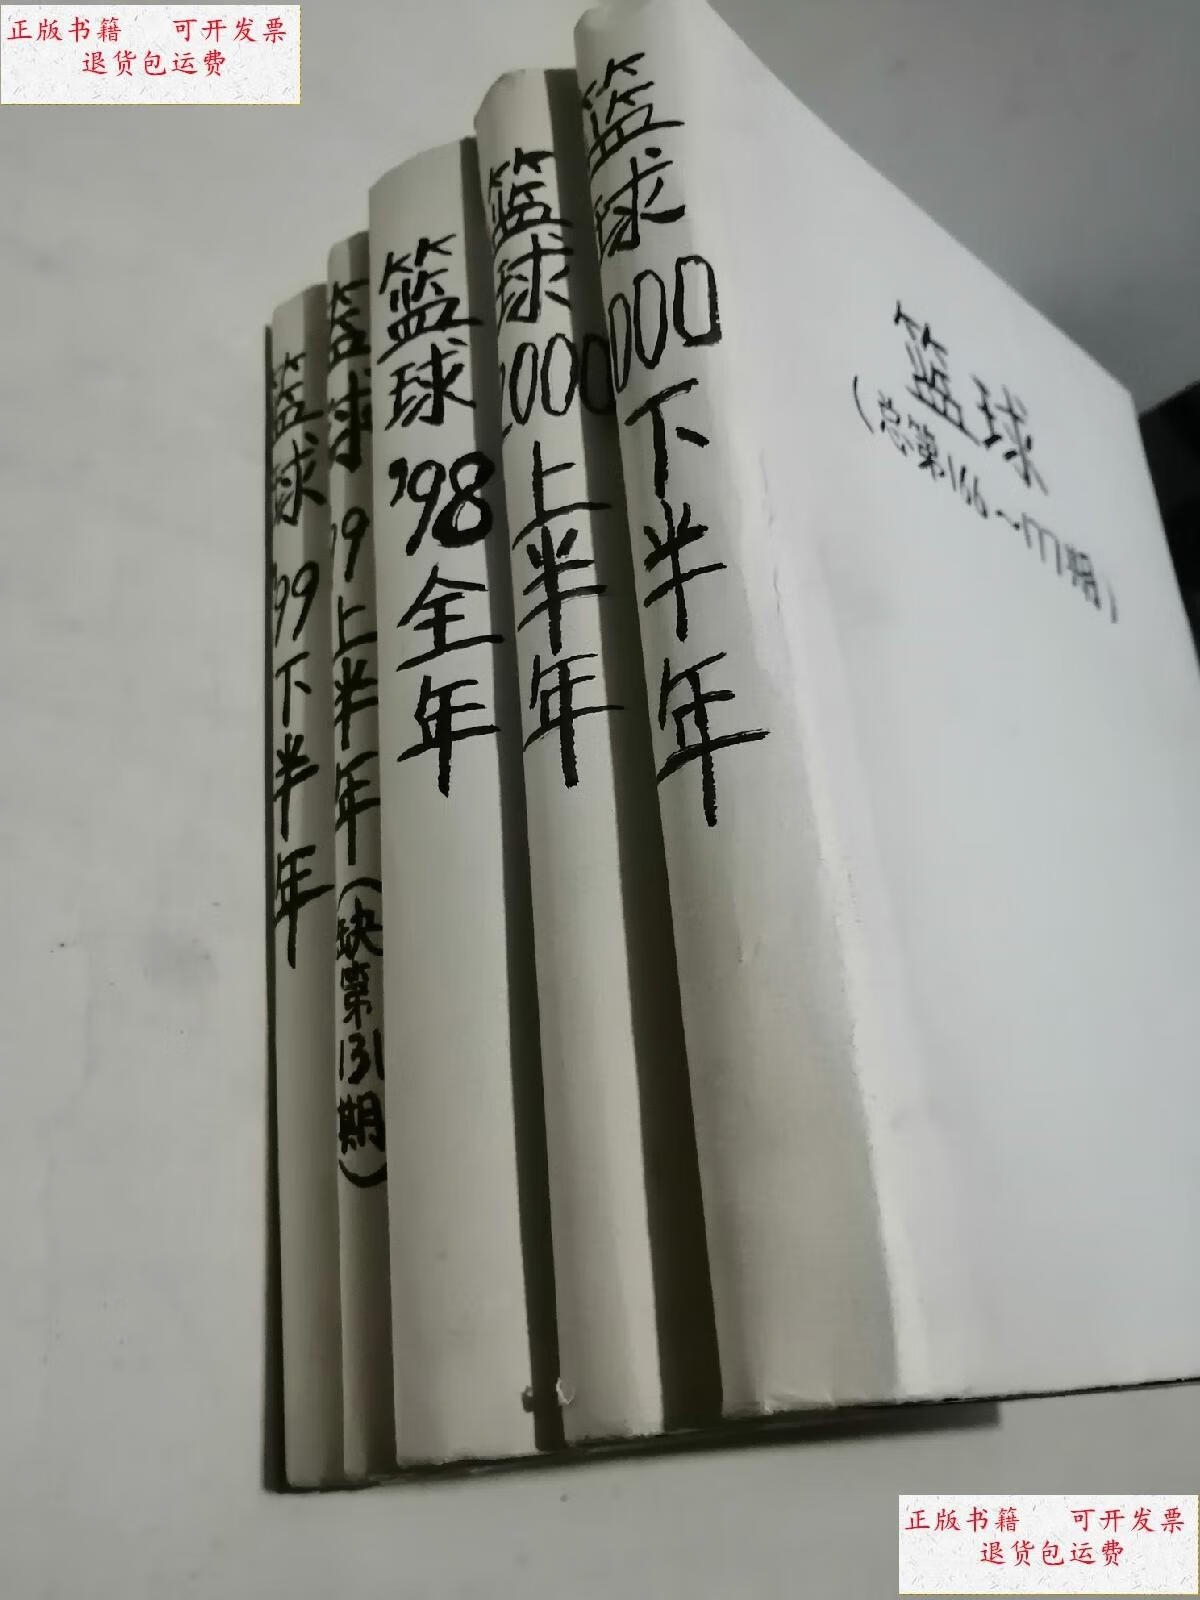 正版书籍 可开发票
退货包运费
篮球 '99下半年
篮球 '99上半年(缺第131期)
篮球 '98全年
篮球 2000上半年
篮球 2000下半年
篮球
(总第166~177期)
正版书籍 可开发票
退货包运费